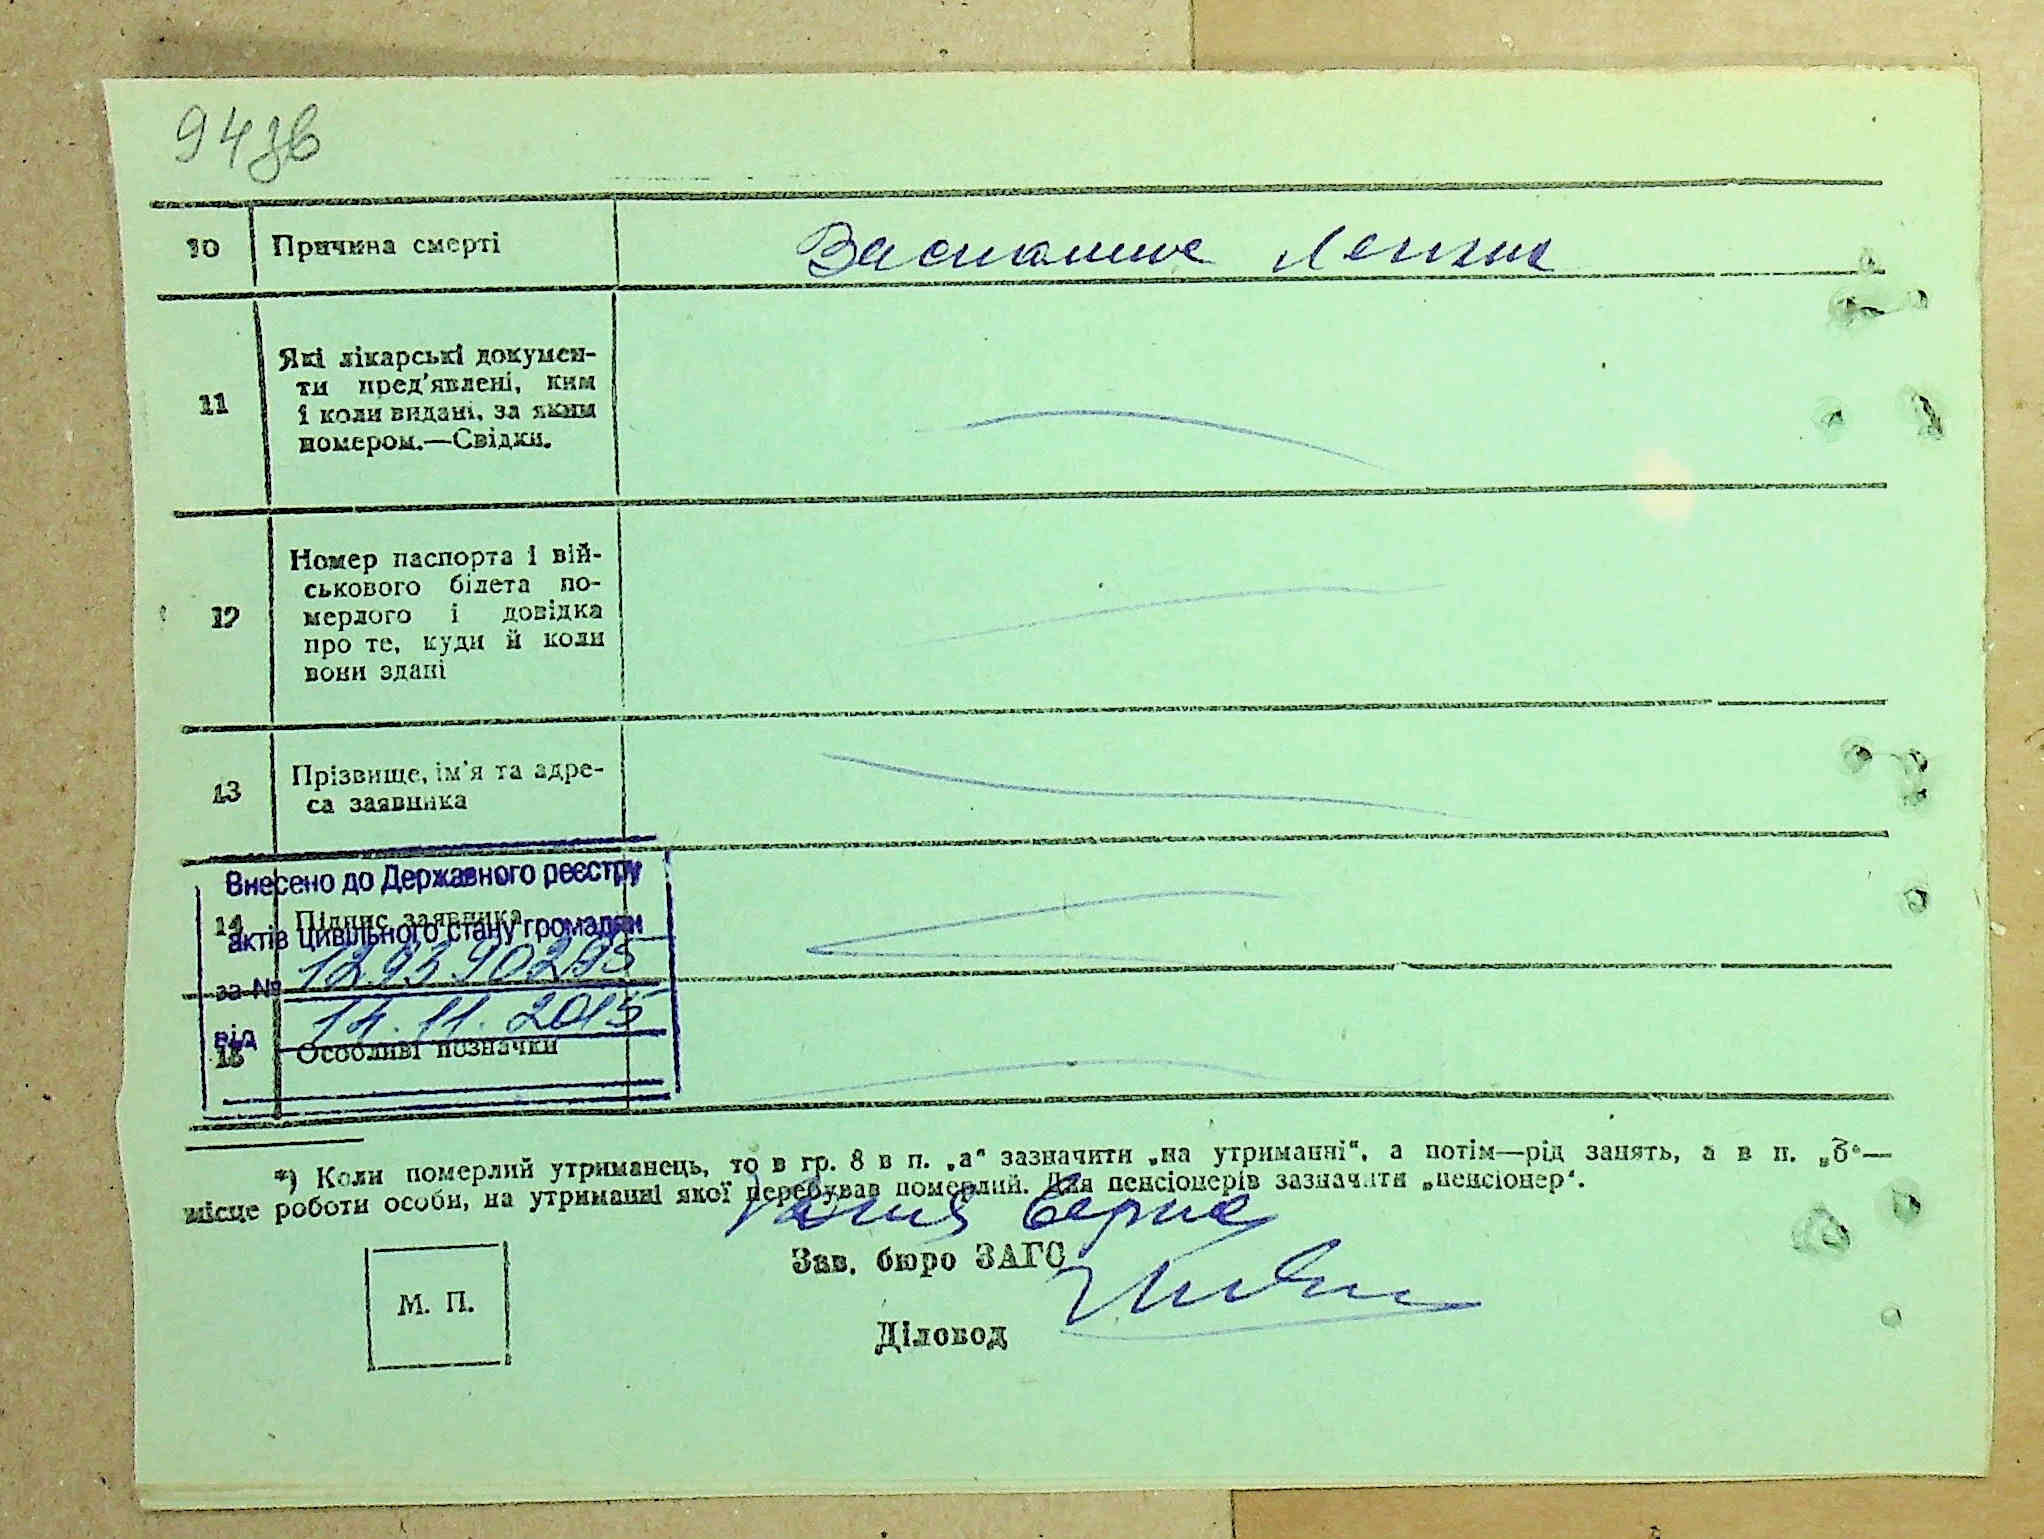 94зв
10 Причина смерті Васпалине Легких
11 Які лікарські докумен-
ти пред'явлені, ким
і коли видані, за яким
номером.—Свідки.
12 Номер паспорта і вій-
ськового білета по-
мерлого і довідка
про те, куди й коли
вони здані
13 Прізвище, ім'я та адре-
са заявника
Внесено до Державного реєстру
14 Підпис заявника
актів цивільного стану громадян
за № 1293390295
від 14.11.2015
15 Особливі позначки
*) Коли померлий утриманець, то в гр. 8 в п. „а" зазначити „на утриманні", а потім—рід занять, а в п. „б"—
місце роботи особи, на утриманні якої перебував померлий. Для пенсіонерів зазначити „пенсіонер".
Зав. бюро ЗАГС
М. П.
Діловод